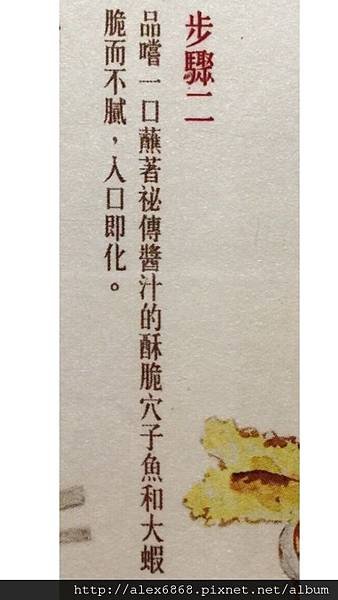 步驟二
品嚐一口蘸著祕傳醬汁的酥脆穴子魚和大蝦
脆而不膩，入口即化。
http://alex6868.pixnet.net/album